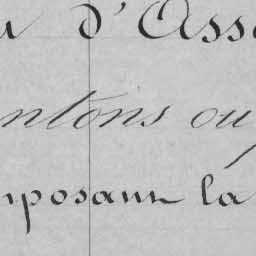 u d'Asse
ntons ou
mposant la